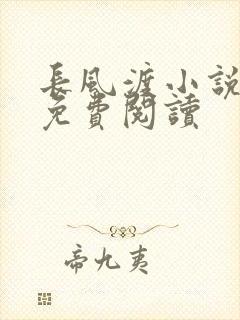 長風渡小說
免費閱讀
帝九夷